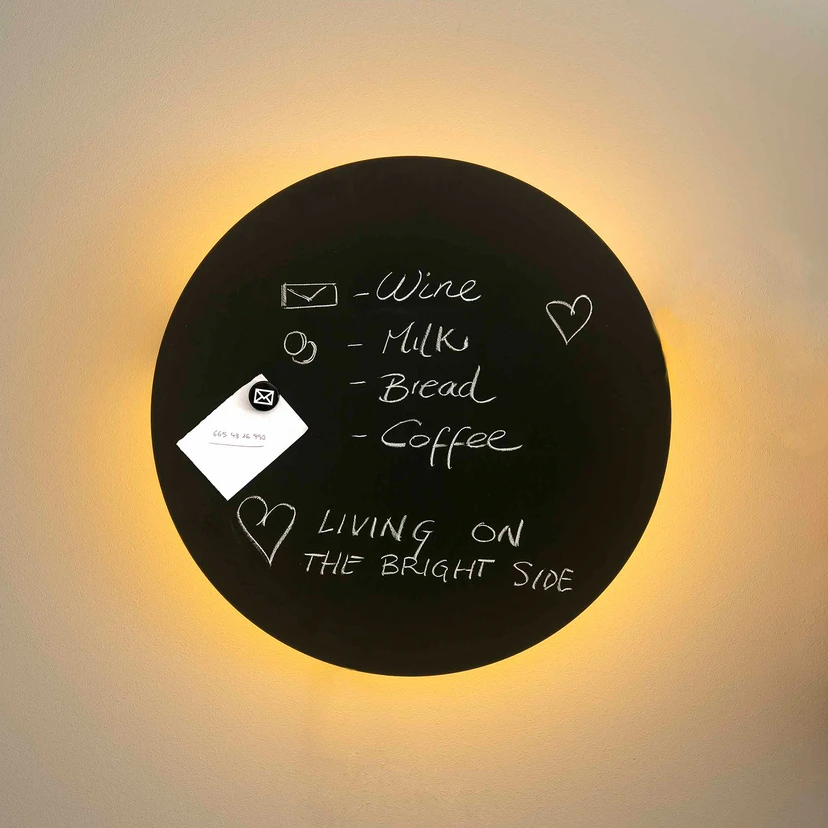 - Wine
- Milk
- Bread
- Coffee
665 48 26 990
LIVING ON
THE BRIGHT SIDE